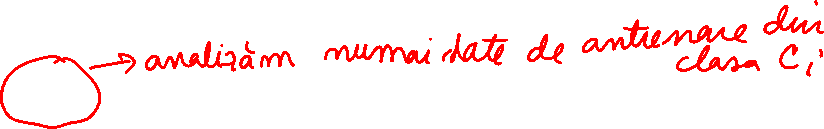 analizăm numai date de antrenare din
clasa Ci